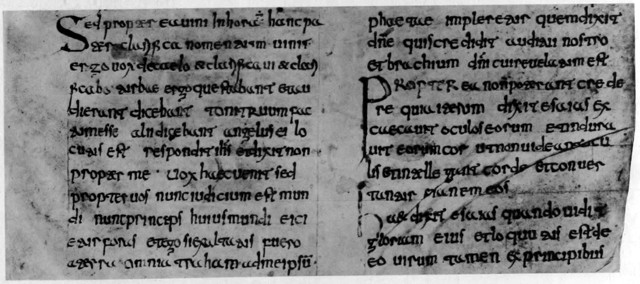 Sed propterea uini in hora hanc pa
ter clarifica nomen tuum uinit
ergo uox de caelo & clarificaui & clari
ficabo turbae ergo que stabant et au
dierant dicebant tonitruum fac
tum esse alii dicebant angelus ei lo
cutus est respondit ihs et dixit non
propter me uox haec uenit sed
propter uos nunc iudicium est mun
di nunc princeps huius mundi eici
etur foras et ego si exaltatus fuero
a terra omnia traham ad me ipsū
phetae impleretur quem dixit
dne quis credidit auditui nostro
et brachium dni cui reuelatum est
PROPTER ea non poterant crede
re quia iterum dixit esaias ex
caecauit oculos eorum et indura
uit eorum cor ut non uideant ocu
lis et intellegant corde et conuer
tantur et sanem eos
Haec dixit esaias quando uidit
gloriam eius et locutus est de
eo uirum tamen ex principibus